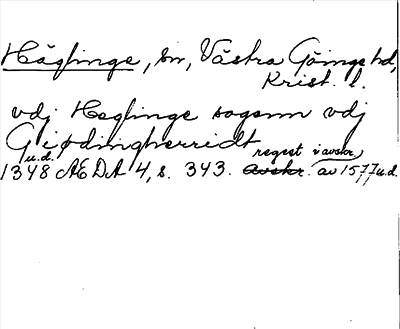 Häglinge, sn, Västra Göinge hd,
Krist. l.
vdj Heglinge sogenn vdj
Giødingherridt
u.d. regest i avskr.
1348 AEDA 4, s. 343. Avskr. av 1577 u.d.